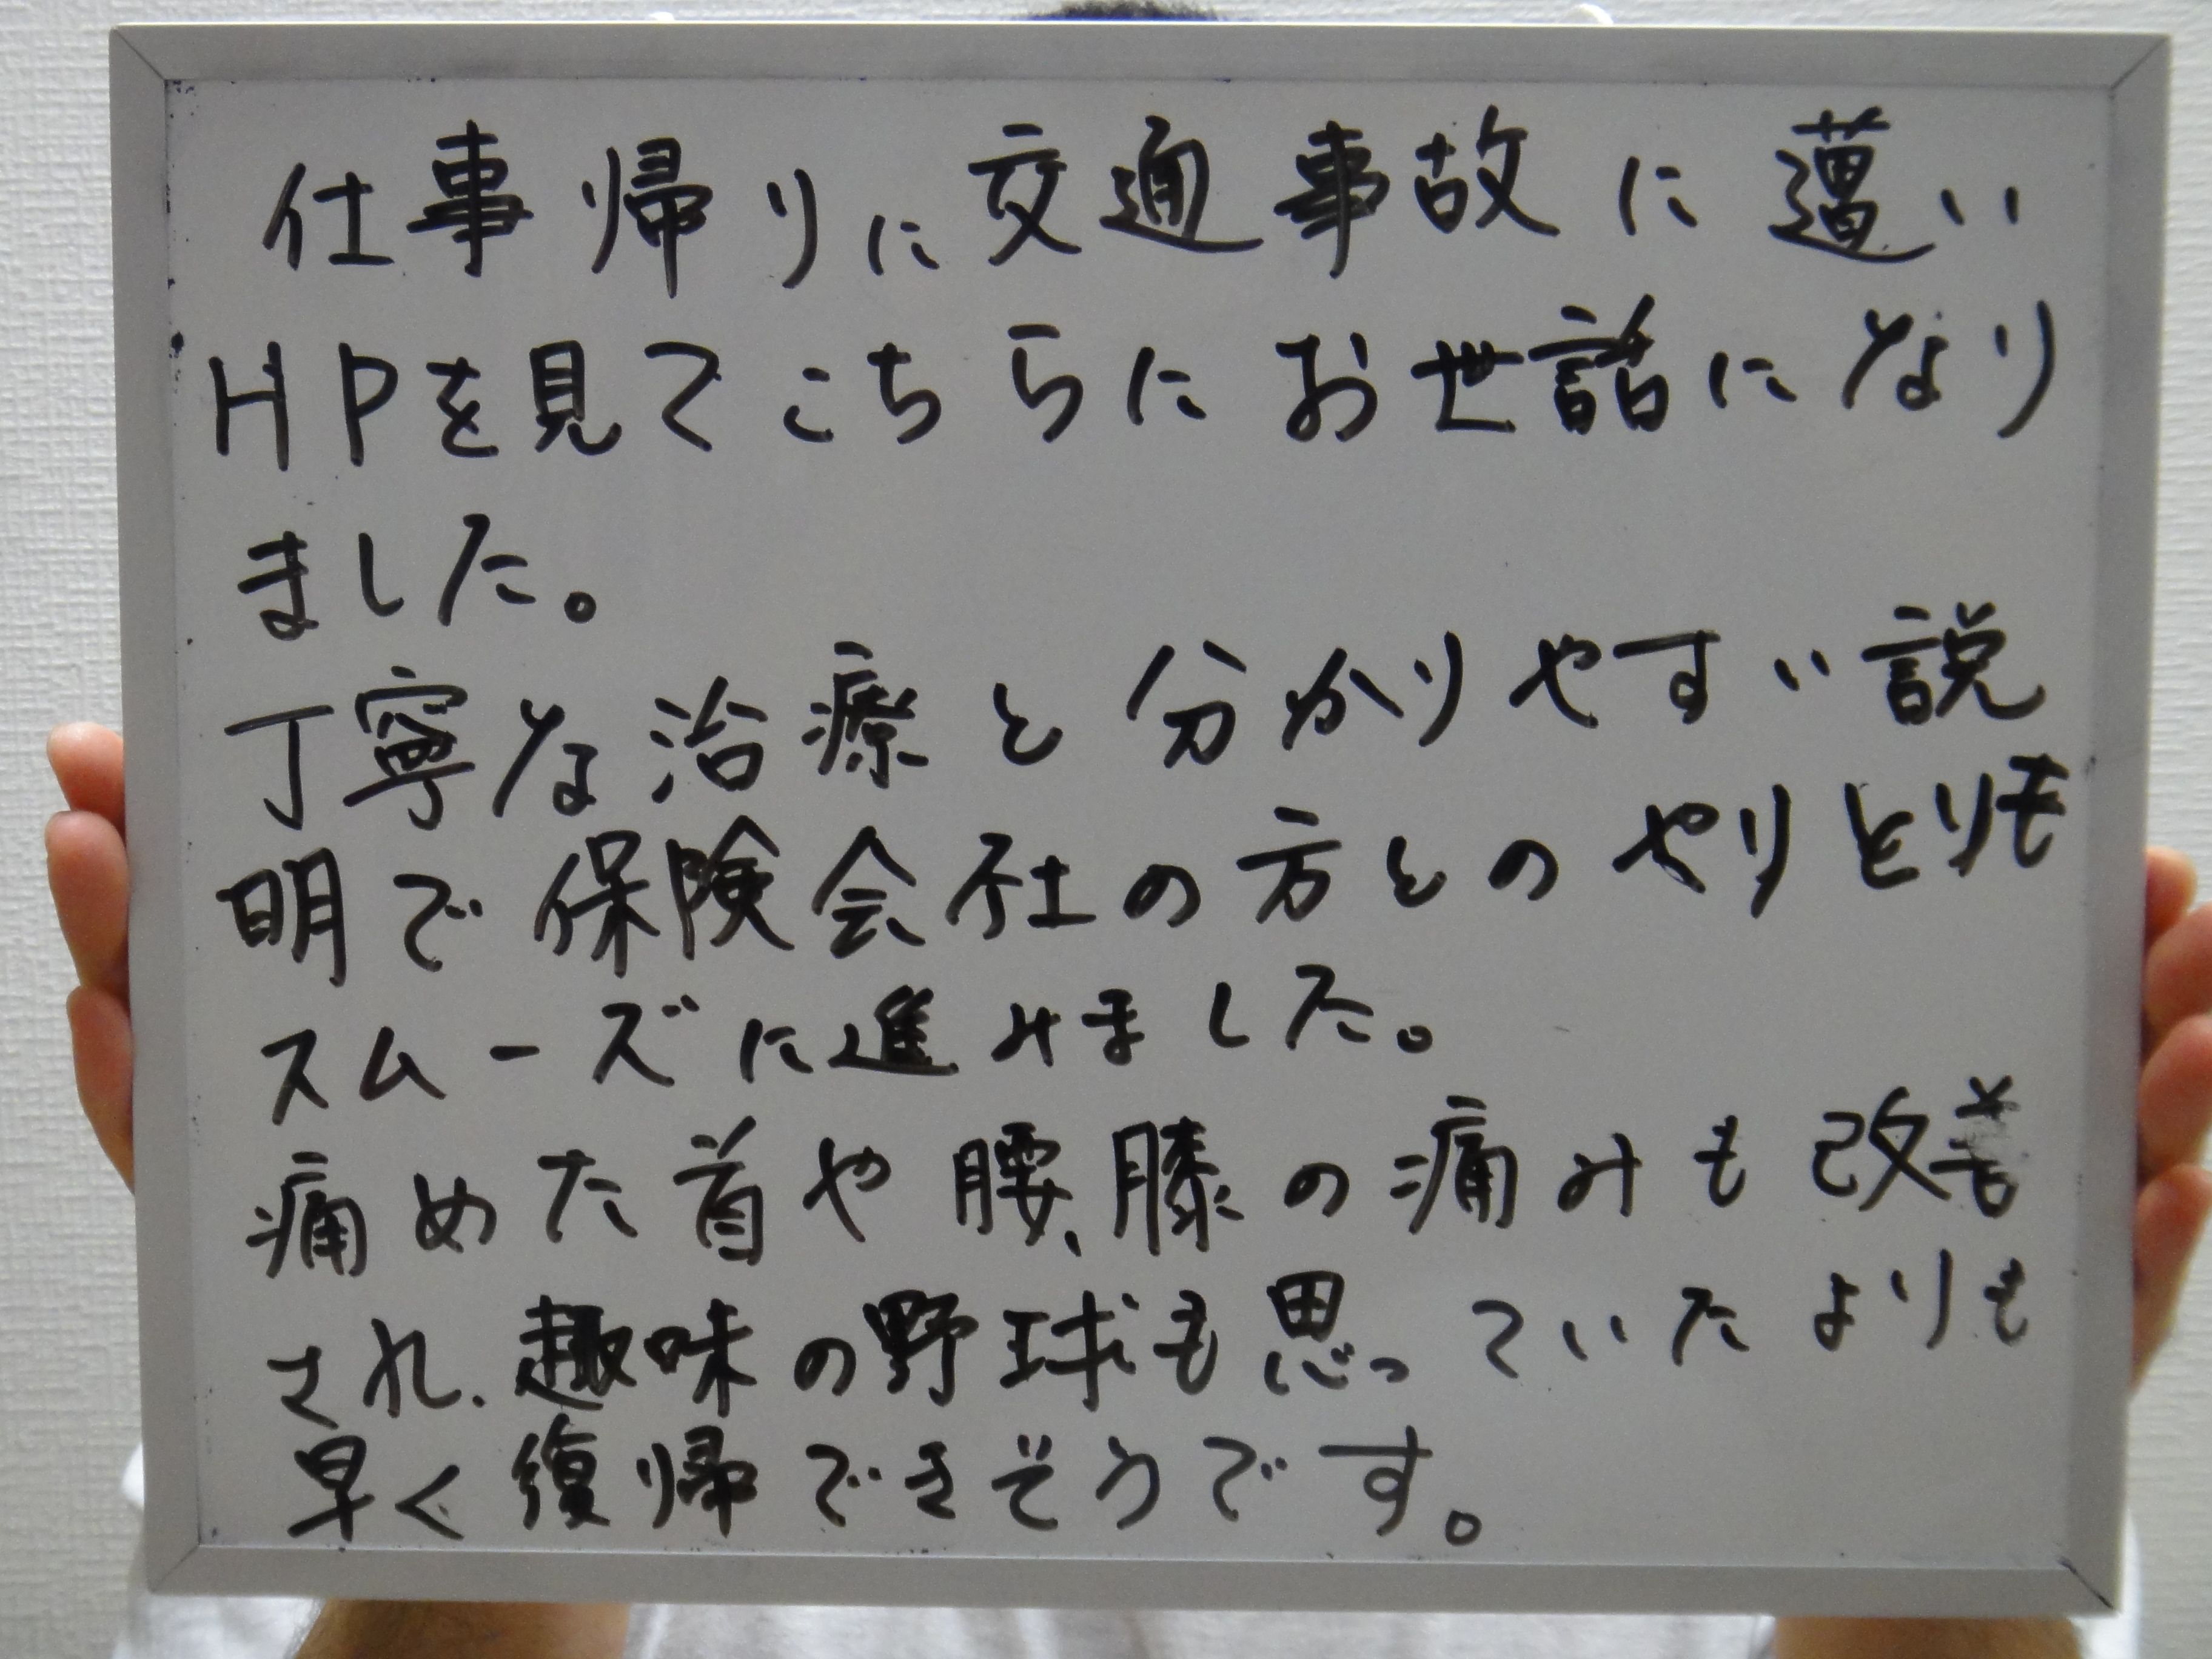 仕事帰りに交通事故に遭い
HPを見てこちらにお世話になり
ました。
丁寧な治療と分かりやすい説
明で保険会社の方とのやりとりも
スムーズに進みました。
痛めた首や腰、膝の痛みも改善
され、趣味の野球も思っていたよりも
早く復帰できそうです。